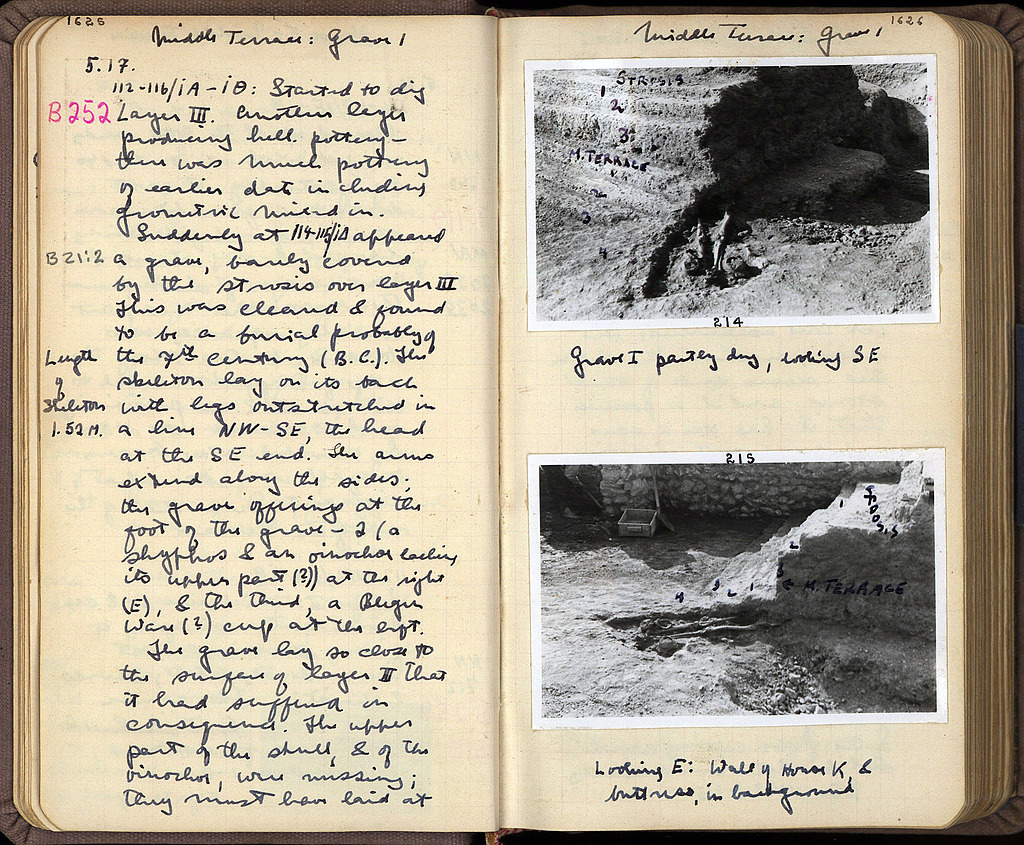 1625
Middle Terrace: Grave 1
5.17.
112-116/iA-iΘ: Started to dig
B252
Layer III. Another layer
producing hell. pottery –
there was much pottery
of earlier date including
geometric mixed in.
Suddenly at 114-115/iA appeared
B21:2
a grave, barely covered
by the strosis over layer III
This was cleared & found
to be a burial probably of
the 7th century (B.C.). The
Length
of
Skeleton
1.52 M.
skeleton lay on its back
with legs outstretched in
a line NW-SE, the head
at the SE end. The arms
extend along the sides.
the grave offerings at the
foot of the grave – 2 (a
skyphos & an oinochoe lacking
its upper part (?)) at the right
(E), & the third, a
Ware (?) cup at the left.
The grave lay so close to
the surface of layer II that
it had suffered in
consequence. The upper
part of the skull, & of the
oinochoe, were missing;
they must have laid at
1626
Middle Terrace: Grave 1
STROSIS
1
2
3
M. TERRACE
2
3
4
214
Grave I partly dug, looking SE
215
STROSIS
1
2
3
4 3 2 1 M. TERRACE
Looking E: Wall of House K, &
buttress, in background